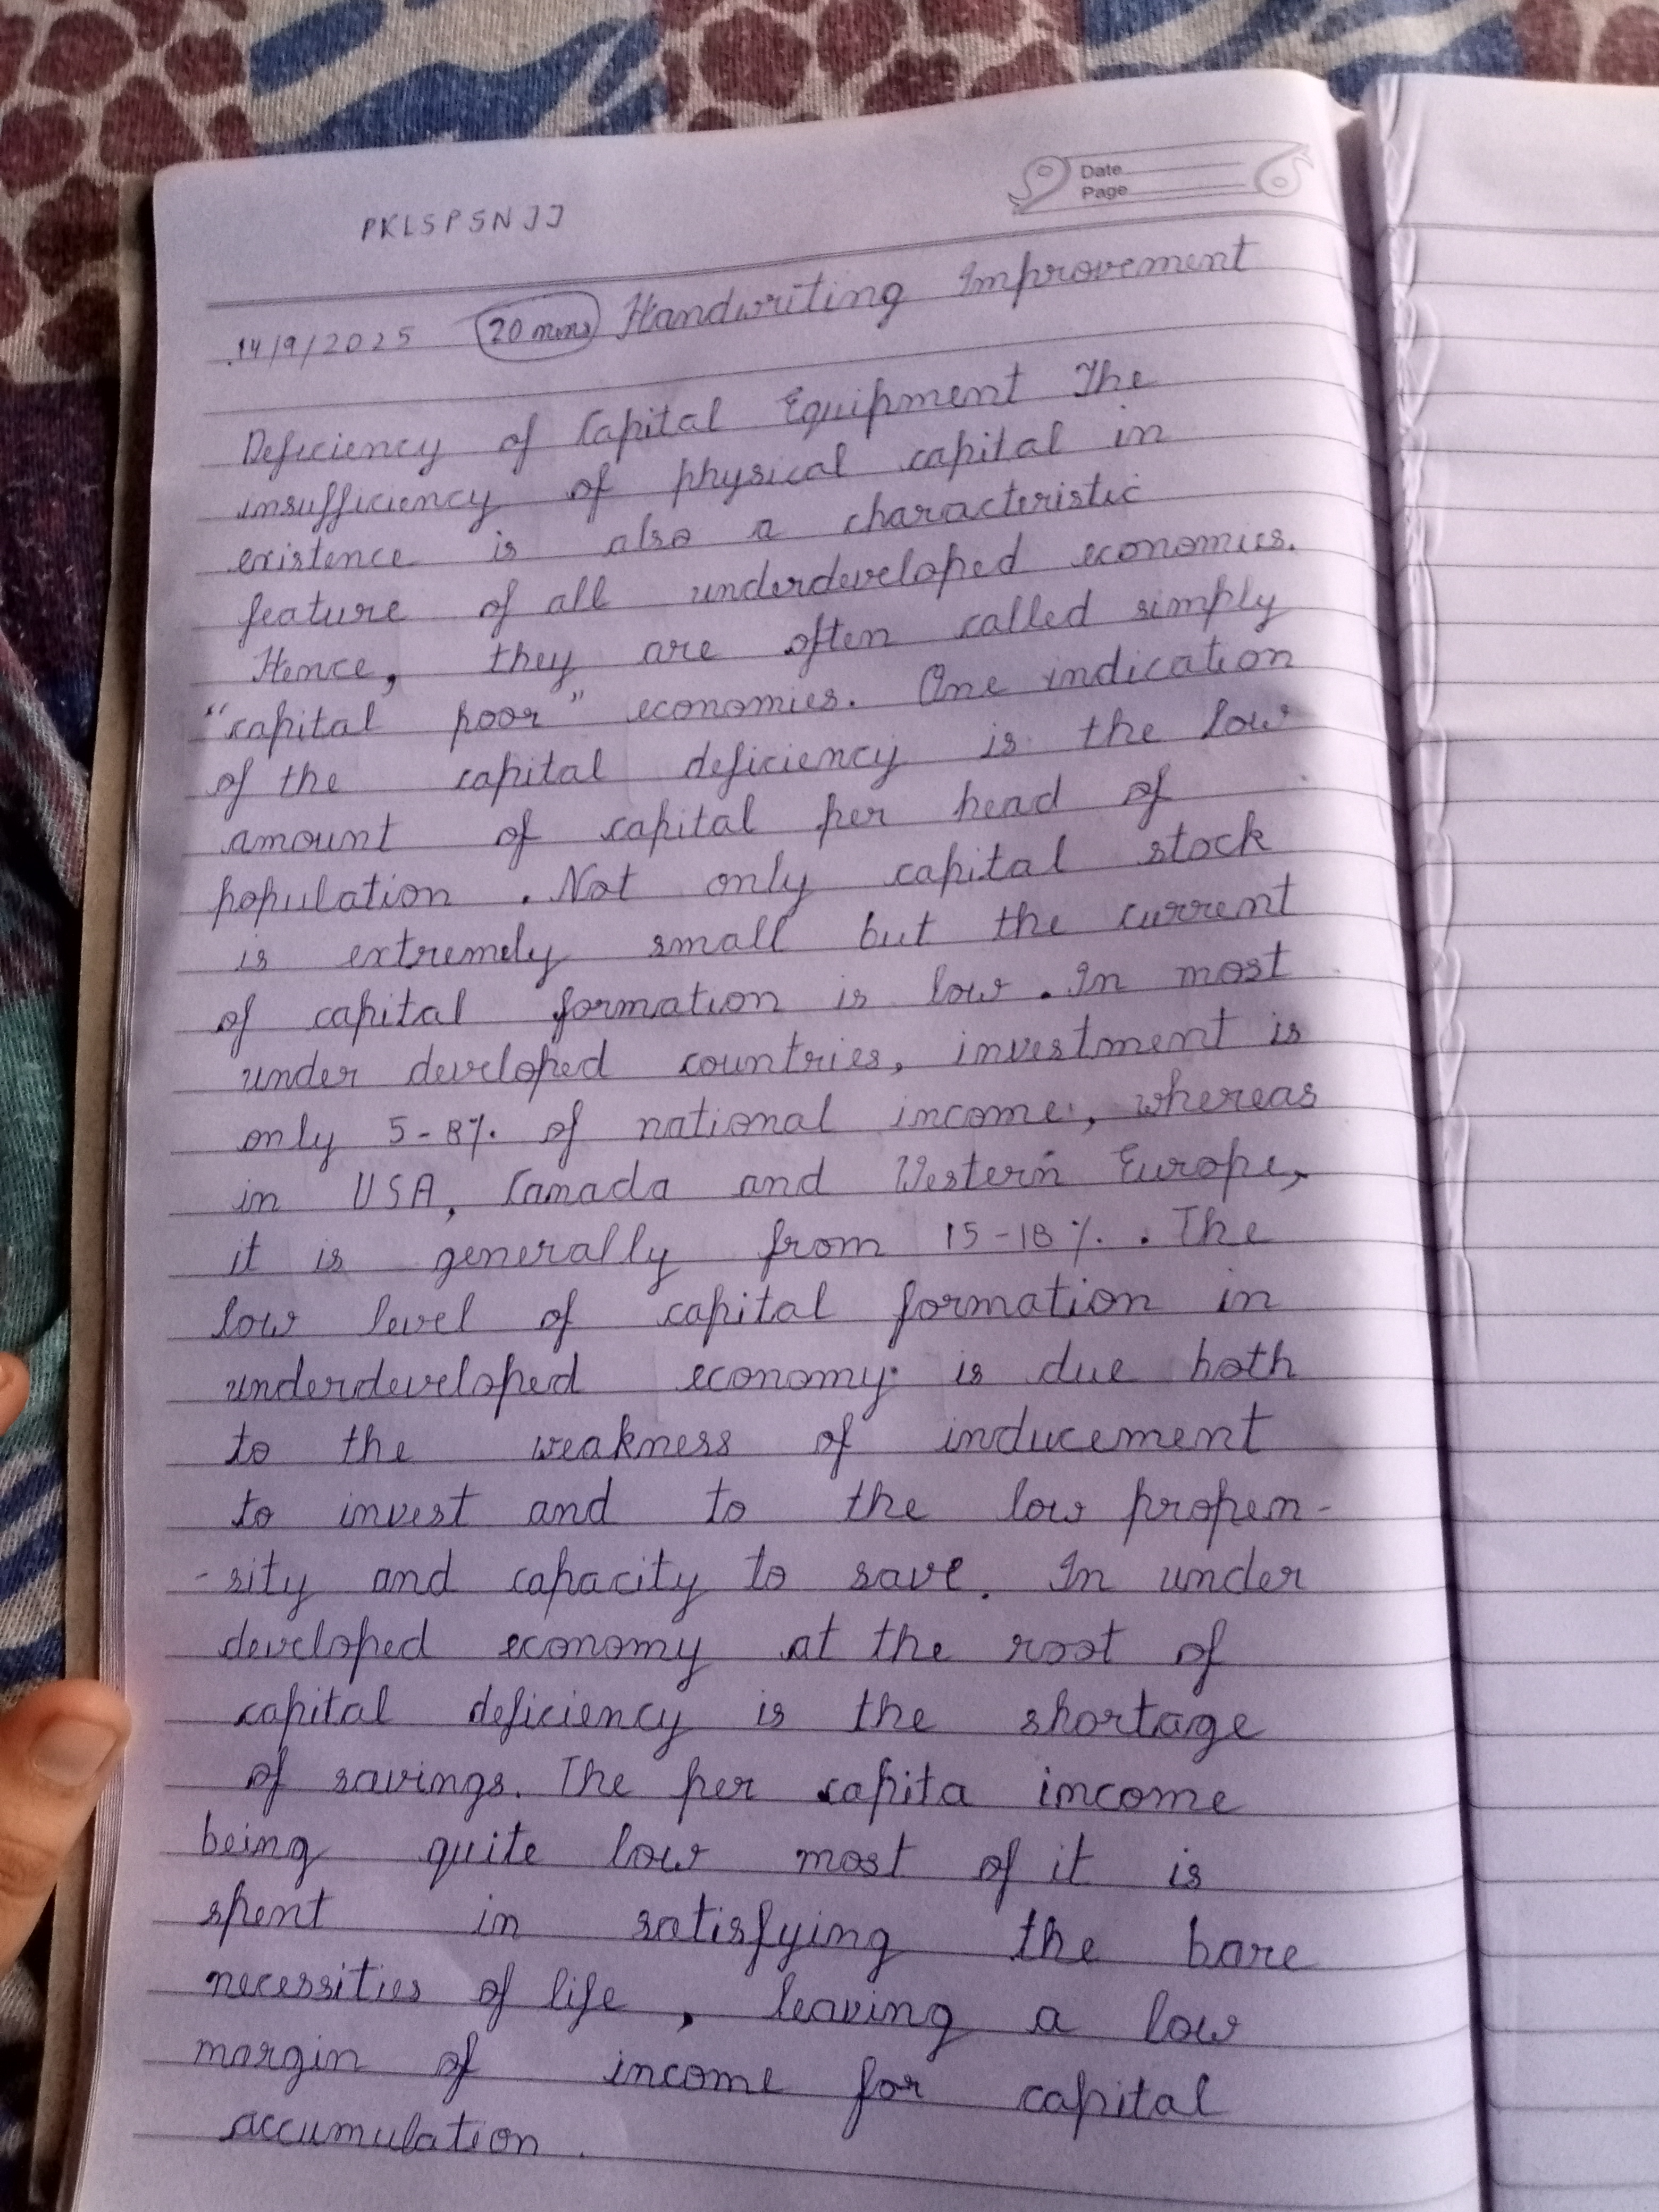 Date
Page
PKLSPSNJJ
14/9/2025 20 mins Handwriting Improvement
Deficiency of Capital Equipment The
insufficiency of physical capital in
existence is also a characteristic
feature of all underdeveloped economies.
Hence, they are often called simply
"capital poor" economies. One indication
of the capital deficiency is the low
amount of capital per head of
population. Not only capital stock
is extremely small but the current
of capital formation is low. In most
under developed countries, investment is
only 5-8% of national income, whereas
in USA, Canada and Western Europe,
it is generally from 15-18%. . The
low level of capital formation in
underdeveloped economy is due both
to the weakness of inducement
to invest and to the low propen-
-sity and capacity to save. In under
developed economy at the root of
capital deficiency is the shortage
of savings. The per capita income
being quite low most of it is
spent in satisfying the bare
necessities of life, leaving a low
margin of income for capital
accumulation.